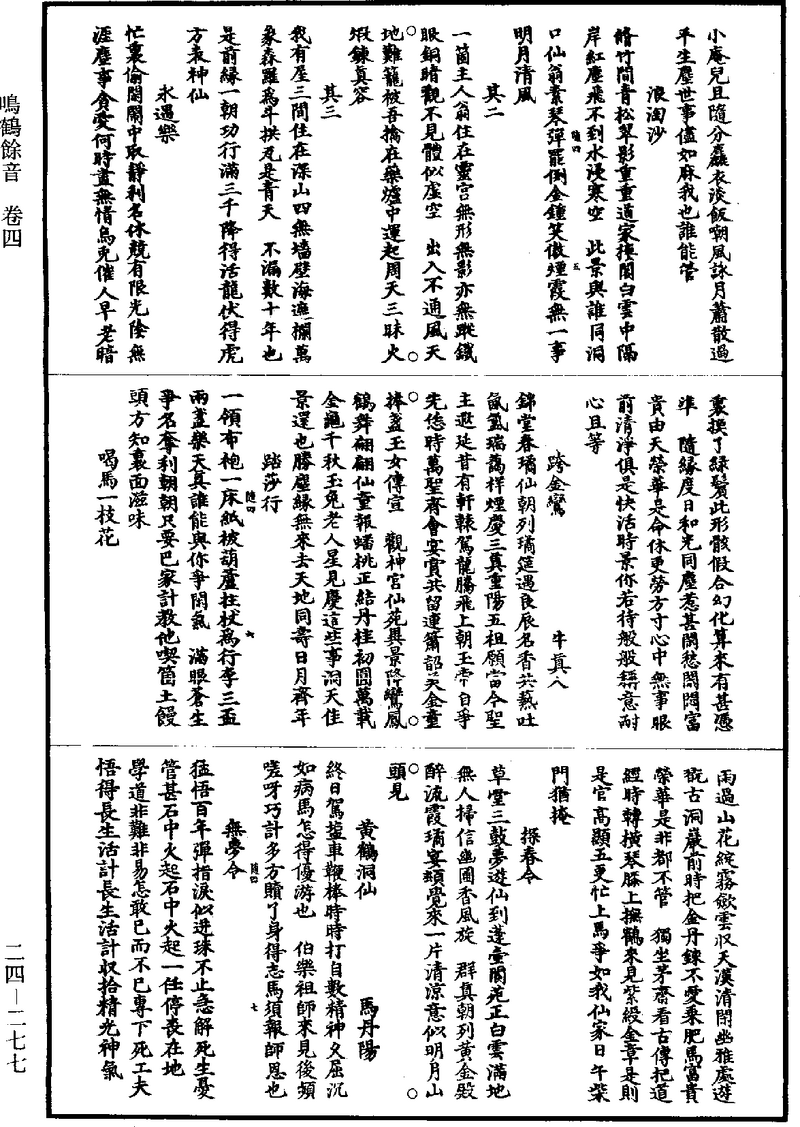 鳴鶴餘音　卷四
小庵兒且隨分麤衣淡飯嘲風詠月蕭散過
平生塵世事儘如麻我也誰能管
浪淘沙
脩竹間青松翠影重重道家樓閣白雲中隔
岸紅塵飛不到水浸寒空　此景與誰同洞
口仙翁素琴彈罷倒金鍾笑傲煙霞無一事
明月清風
其二
一箇主人翁住在靈宮無形無影亦無蹤鐵
眼銅睛觀不見體似虛空　出入不通風天
地難籠被吾擒在藥爐中運起周天三昧火
煅鍊真容
其三
我有屋三間住在深山四無墻壁海遮攔萬
象森羅為斗拱瓦是青天　不漏數十年也
是前緣一朝功行滿三千降得活龍伏得虎
方表神仙
永遇樂
忙裏偷閑鬧中取靜利名休競有限光陰無
涯塵事貪愛何時盡無情烏兔催人早老暗
裏換了綠鬢此形骸假合幻化算來有甚憑
準　隨緣度日和光同塵惹甚閑愁閑悶富
貴由天榮華是命休更勞方寸心中無事眼
前清淨俱是快活時景你若待般般稱意耐
心且等
跨金鸞　　牛真人
錦堂春璚仙朝列璚筵遇良辰名香共爇吐
氤氳瑞靄祥煙慶三真重陽五祖願當今聖
主遐延昔有軒轅駕龍騰飛上朝玉帝自爭
先恁時萬聖齊會宴賞共留連簫韶美金童
捧盞玉女傳宣　觀神宮仙苑異景降鸞鳳
鶴舞翩翩仙童報蟠桃正結丹桂初圓萬載
金龜千秋玉兔老人星見慶這些事洞天佳
景還也勝塵緣無來去天地同壽日月齊年
踏莎行
一領布袍一床紙被葫蘆拄杖為行李三盃
兩盞樂天真誰能與你爭閑氣　滿眼蒼生
爭名奪利朝朝只要巴家計教他喫箇土饅
頭方知裏面滋味
喝馬一枝花
雨過山花綻霧斂雲收天漢清閑幽雅處遊
翫古洞巖前時把金丹鍊不愛乘肥馬富貴
榮華是非都不管　獨坐茅齋看古傳把道
經時轉橫琴膝上撫鶴來見紫綬金章是則
是官高顯五更忙上馬爭如我仙家日午柴
門猶掩
探春令
草堂三鼓夢遊仙到蓬壺閬苑正白雲滿地
無人掃信幽圃香風旋　群真朝列黃金殿
醉流霞璚宴頻覺來一片清涼意似明月山
頭見
黃鶴洞仙　　馬丹陽
終日駕鹽車鞭棒時時打自數精神久屈沉
如病馬怎得優游也　伯樂祖師來見後頻
嗟呀巧計多方贖了身得志馬須報師恩也
無夢令
猛悟百年彈指淚似迸珠不止急解死生憂
管甚石中火起石中火起一任停喪在地
學道非難非易怎敢已而不已專下死工夫
悟得長生活計長生活計收拾精光神氣
二四－二七七